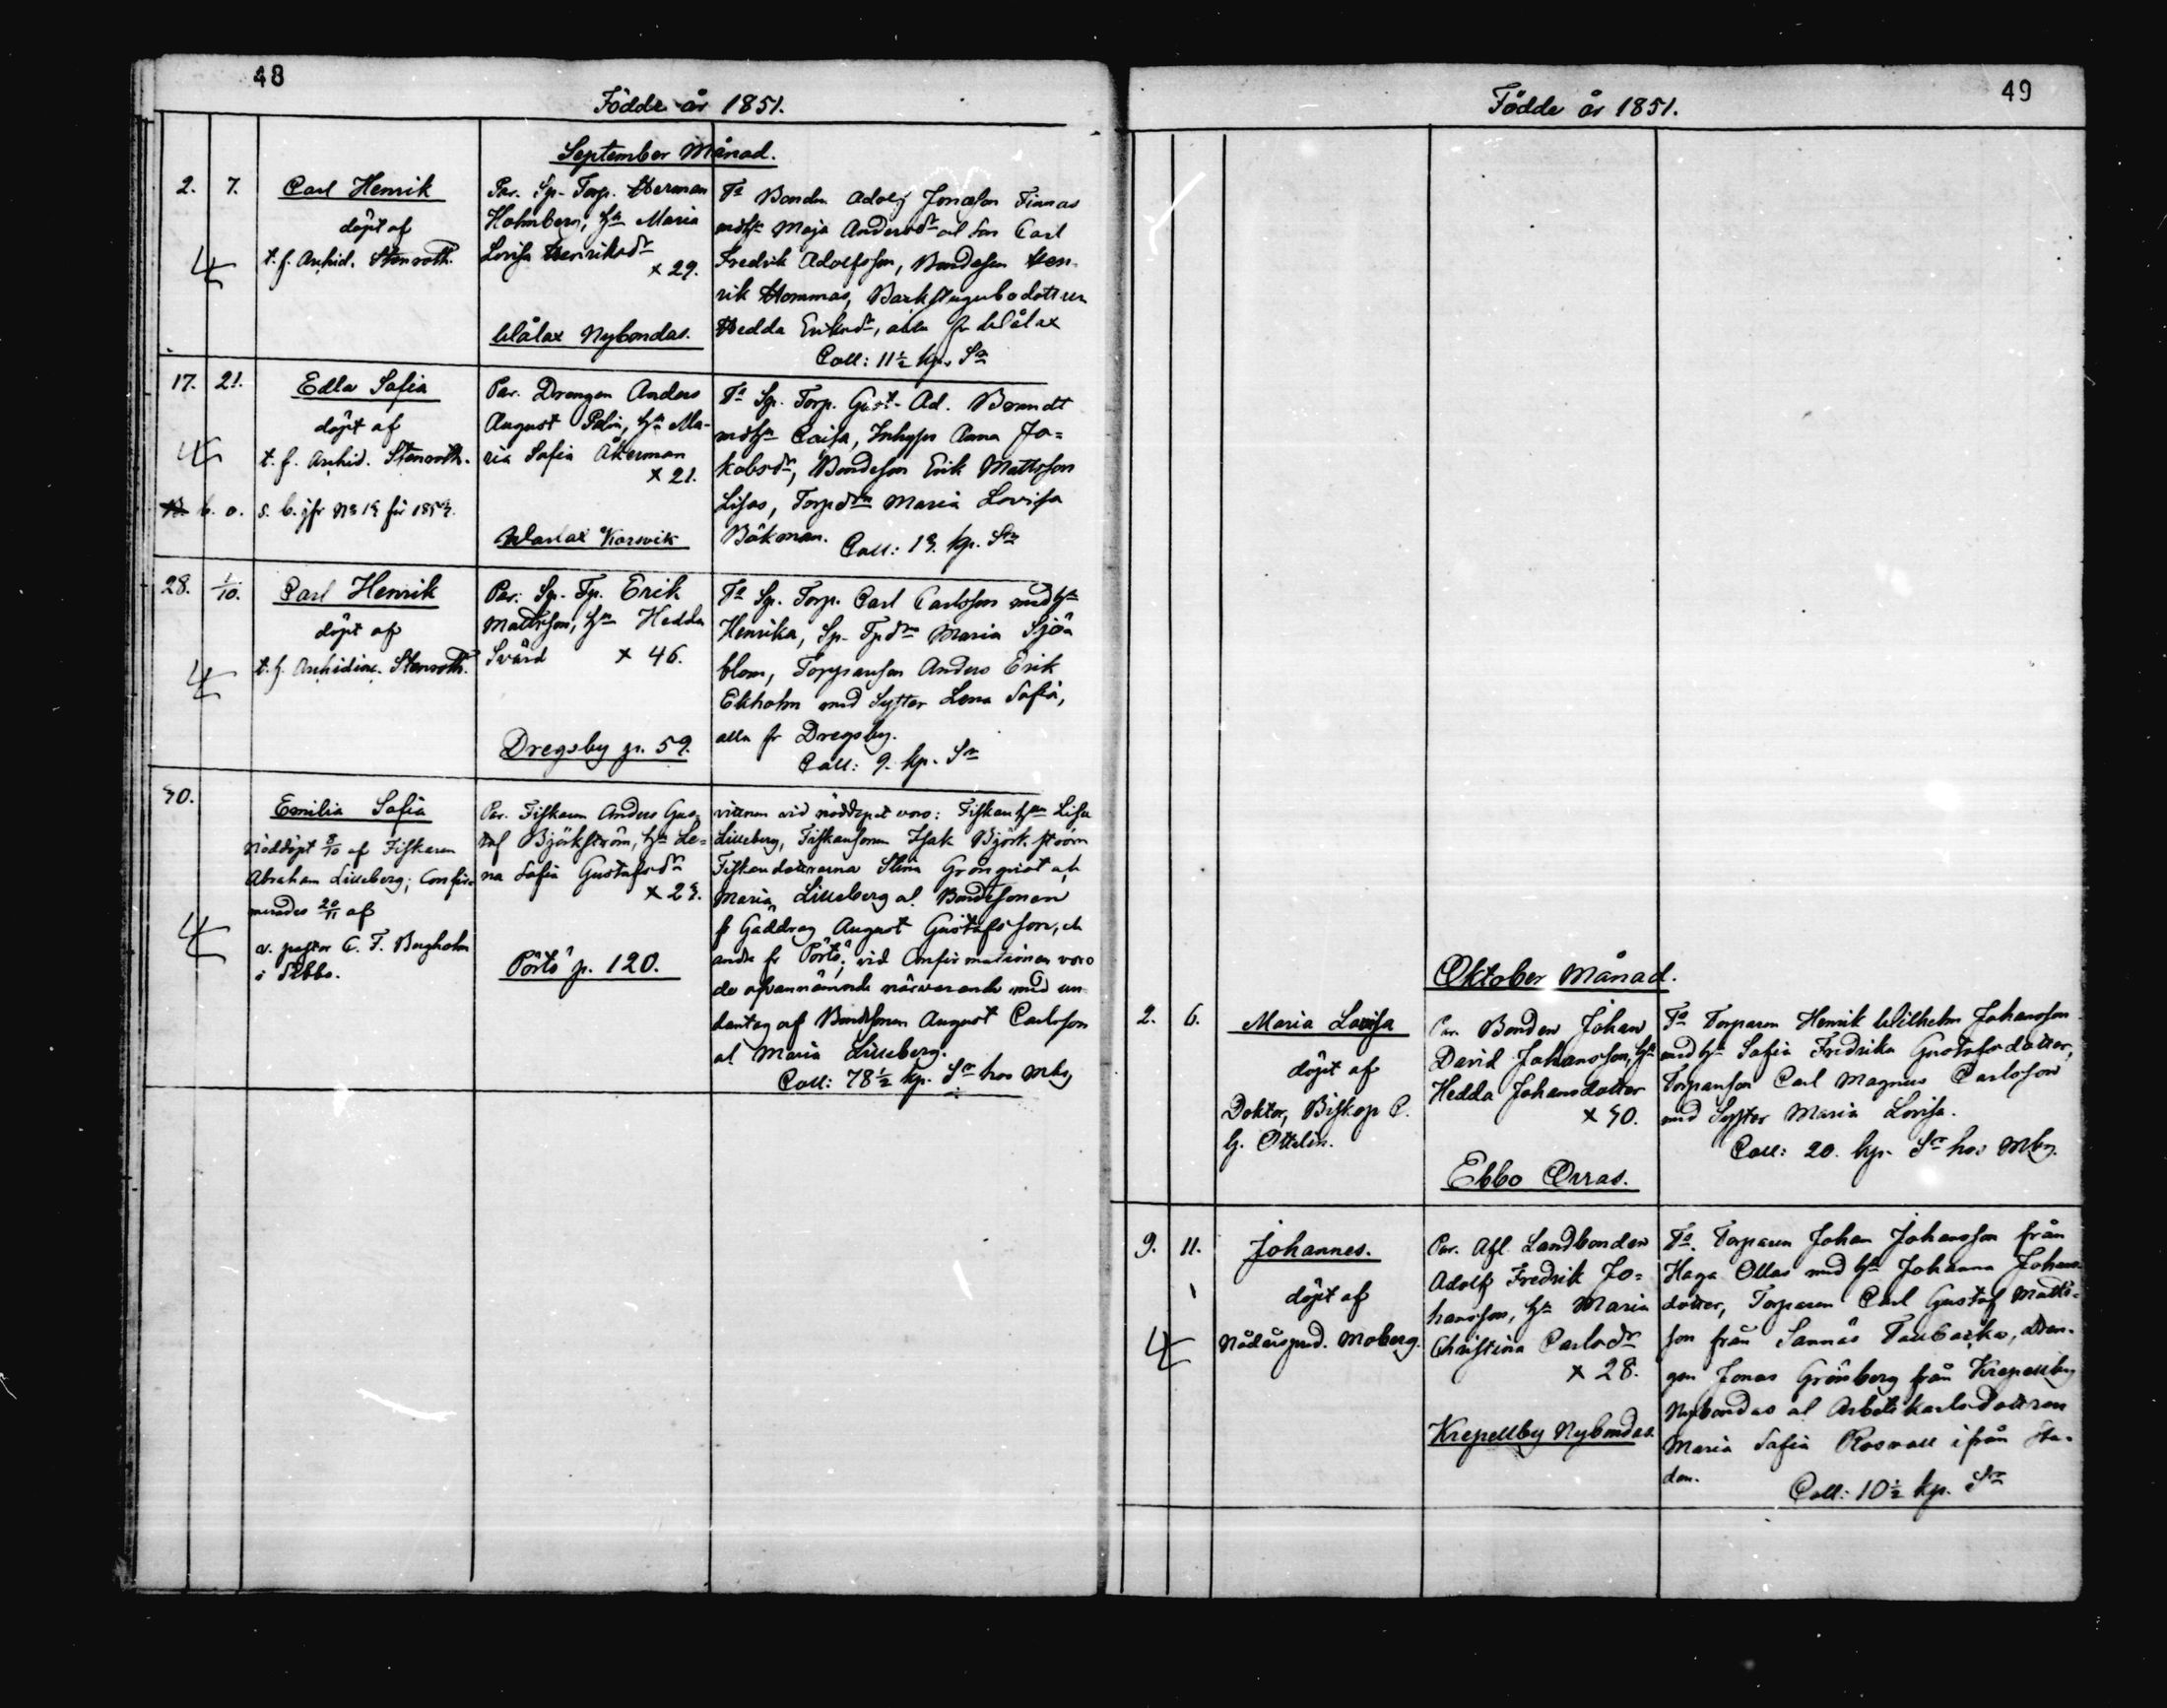 48
Födde år 1851.
September Månad.
2. 7.
Carl Henrik
döpt af
t. f. Archid. Stenroth.
Par. Sp. Torp. Herman
Holmberg, Hu Maria
Lovisa Henriksdr
x 29.
Wålax Nybondas.
Fa Bonden Adolf Jonasson Finnas
m. Hu Maja Andersdr o. Son Carl
Fredrik Adolfsson, Bondeson Hen-
rik Hommas, Backstugubodottren
Hedda Eriksdr, alla fr Wålax
Coll: 11½ kp. Sr
17. 21.
Edla Sofia
döpt af
t. f. Archid. Stenroth.
s. b. jfr No 13 för 1853.
Par. Drängen Anders
August Palin, Hu Ma-
ria Sofia Åkerman
x 21.
Warlax Korsvik
Fa Sp. Torp. Gust. Ad. Brandt
m. Hu Caisa, Inhyses Anna Ja=
kobsdr, Bondeson Erik Mattsson
Lisas, Torpdrn Maria Lovisa
Bökman. Coll: 13. kp. Sr
28. 1/10.
Carl Henrik
döpt af
t. f. Archidiac. Stenroth.
Par: Sp. Tp. Erik
Mattsson, Hu Hedda
Svärd x 46.
Dregsby p. 59.
Fa Sp. Torp. Carl Carlsson med Hu
Henrika, Sp. Tpdrn Maria Sjö=
blom, Torpareson Anders Erik
Ekholm med Syster Lena Sofia,
alla fr Dregsby.
Coll: 9. kp. Sr
30.
Emilia Sofia
Nöddöpt 8/10 af Fiskaren
Abraham Lilleberg; Confir-
merades 20/11 af
v. pastor C. F. Bergholm
i Sibbo.
Par. Fiskaren Anders Gus-
taf Björkström, Hu Le=
na Sofia Gustafsdr
x 23.
Pörtö p. 120.
vittnen vid nöddopet voro: Fiskarehun Lisa
Lilleberg, Fiskaresonen Isak Björkström
Fiskaredöttrarna Stina Grönqvist och
Maria Lilleberg o. Bondesonen
fr Gäddrag August Gustafsson, de
andra fr Pörtö; vid Confirmationen voro
de ofvannämnde närvarande med un-
dantag af Bondesonen August Carlsson
o. Maria Lilleberg.
Coll: 78½ kp. Sr hos Mbg
49
Födde år 1851.
Oktober Månad.
2. 6.
Maria Lovisa
döpt af
Doktor, Biskop C.
G. Ottelin.
Par. Bonden Johan
David Johansson, Hu
Hedda Johansdotter
x 30.
Ebbo Orras.
Fa Torparen Henrik Wilhelm Johansson
med Hu Sofia Fredrika Gustafsdotter,
Torpareson Carl Magnus Carlsson
med Syster Maria Lovisa.
Coll: 20. kp. Sr hos Mbg.
9. 11.
Johannes.
döpt af
Nådårspred. Moberg.
Par. Afl. Landbonden
Adolf Fredrik Jo=
hansson, Hu Maria
Christina Carlsdr
x 28.
Krepelby Nybondas.
Fa. Torparen Johan Johansson från
Haga Ollas med Hu Johanna Johans-
dotter, Torparen Carl Gustaf Matts=
son från Sannäs Taubacka, Drän-
gen Jonas Grönberg från Krepelby
Nybondas o. Arbetskarlsdottren
Maria Sofia Rosvall ifrån Sta-
den. Coll: 10½ kp. Sr